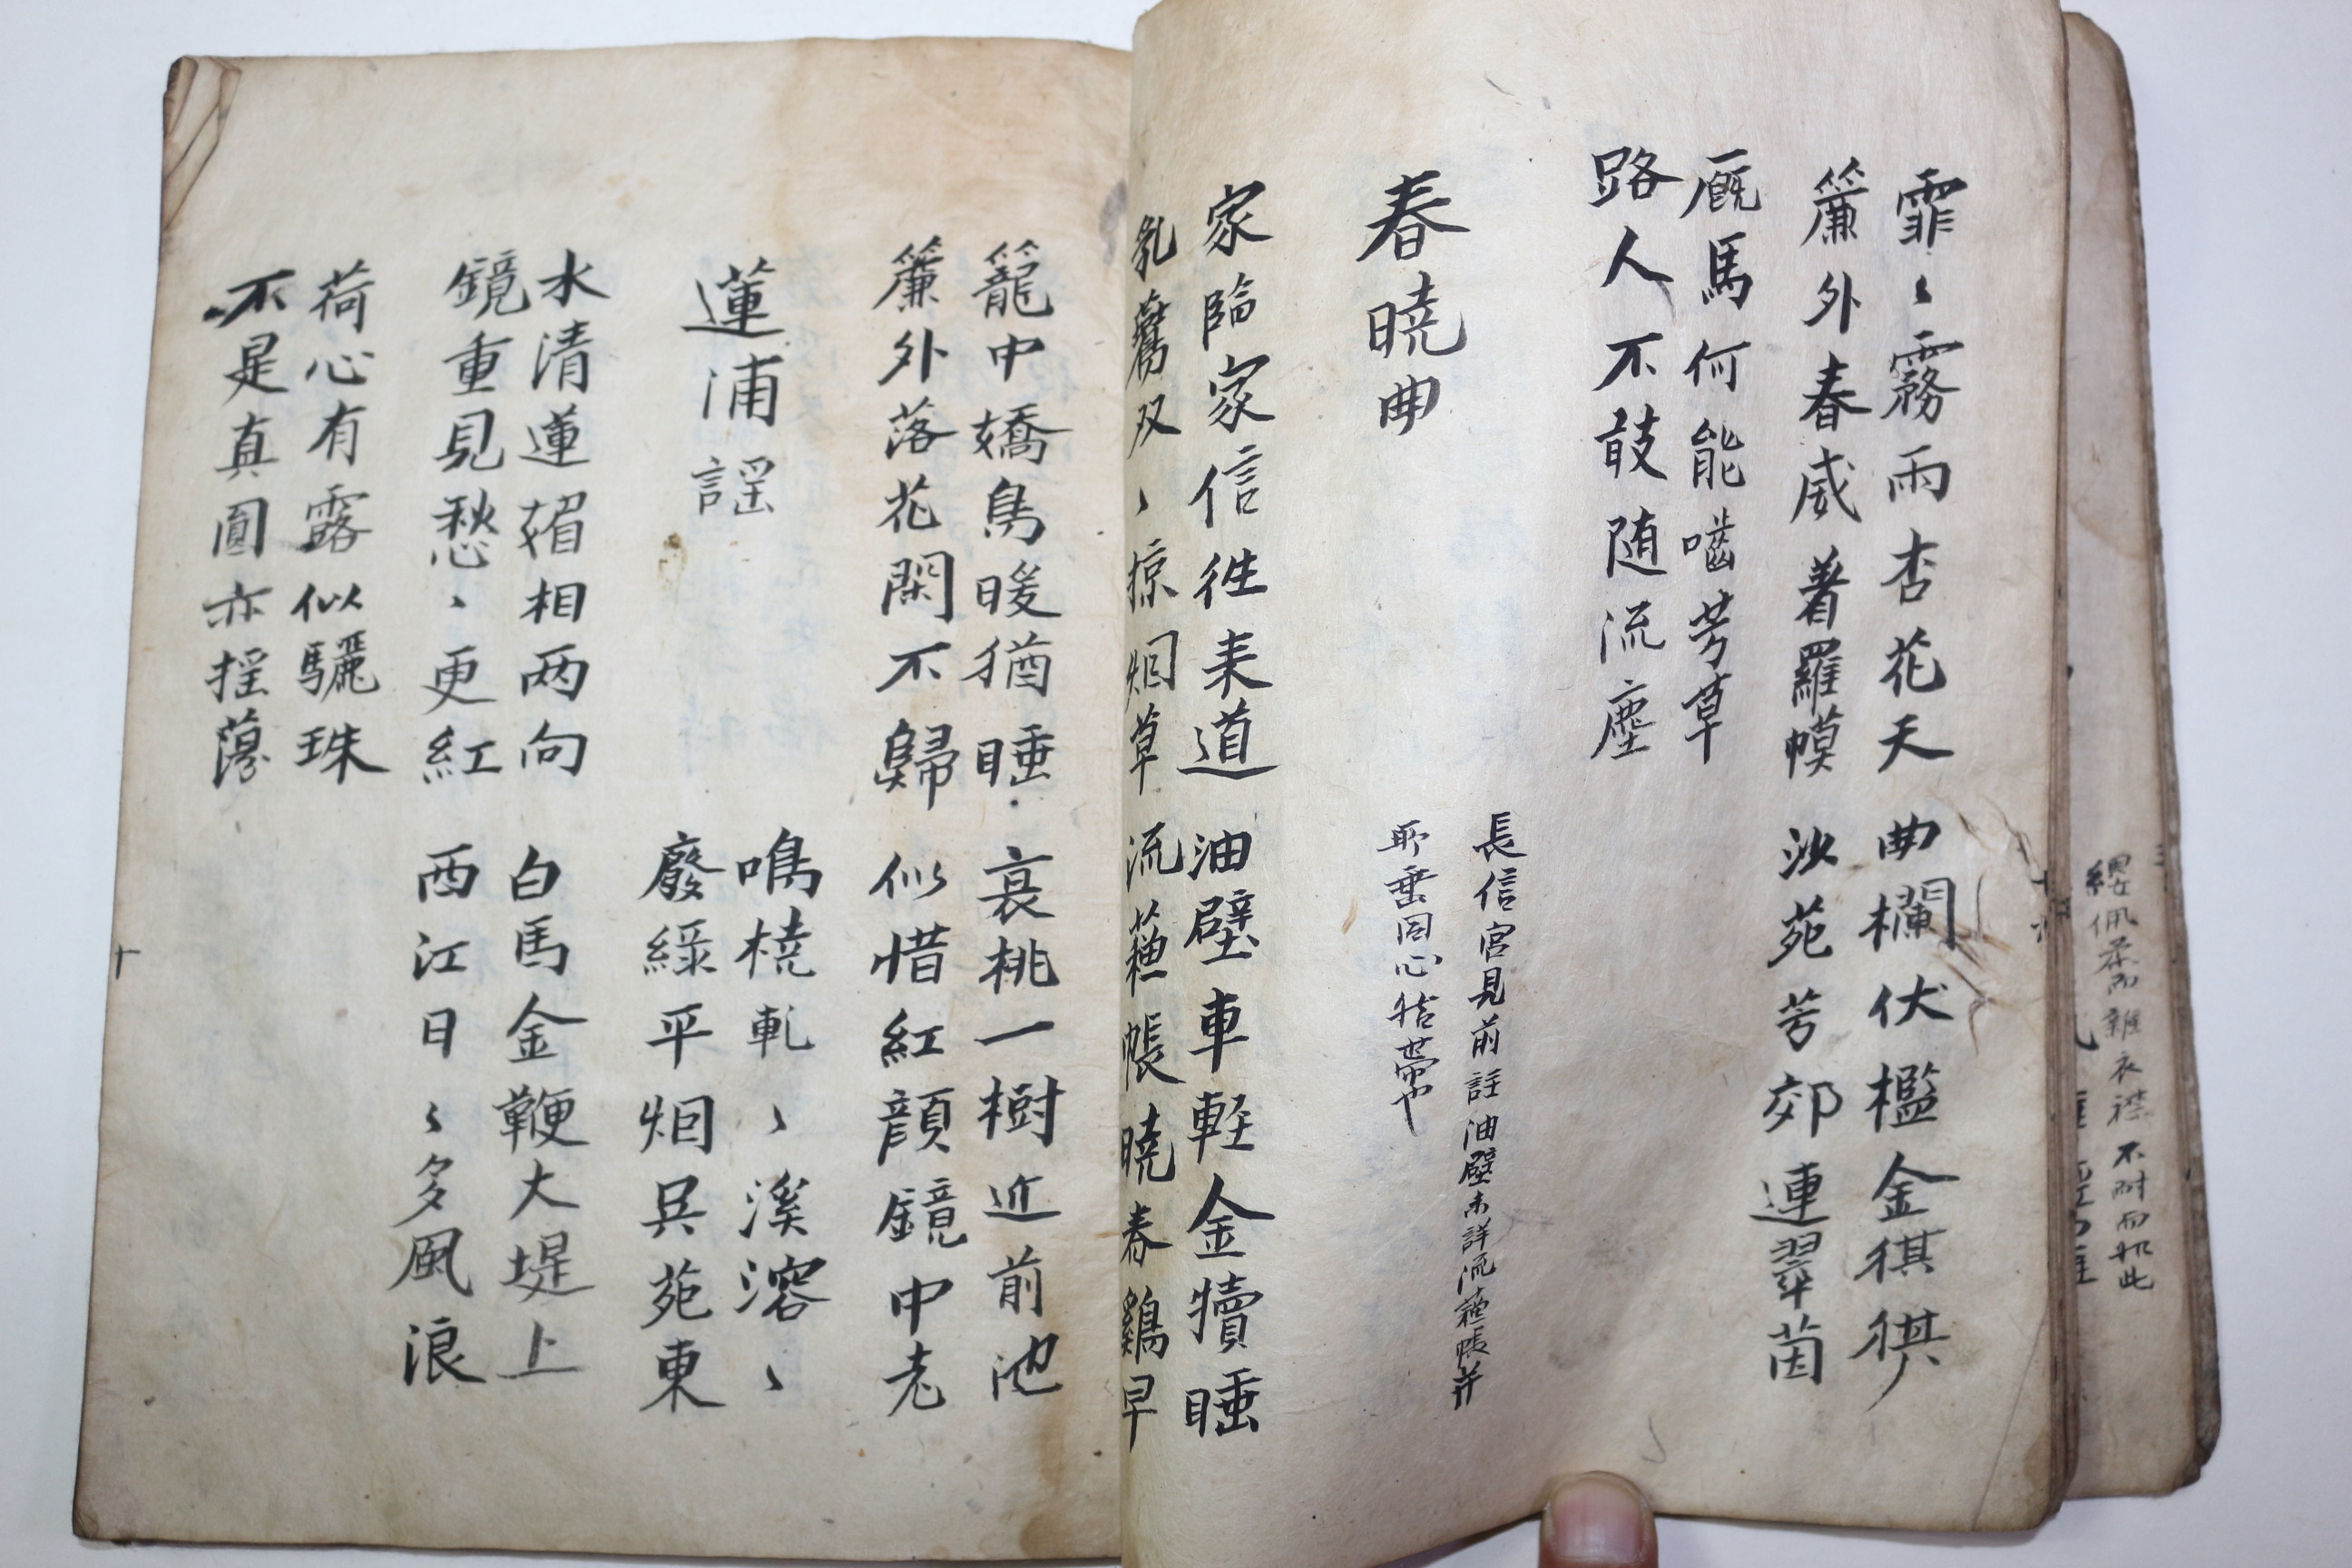 霏〻霧雨杏花天 曲欄伏檻金
簾外春威著羅幙 沙苑芳郊連翠茵
厩馬何能嚙芳草
路人不敢随流塵
春曉曲
長信宮見前註油壁未詳流蘓帳并
垂同心结帶也
家臨家信往来道 油壁車軽金犢睡
乳鷰双〻掠烟草 流蘓帳曉春鷄早
籠中嬌鳥暖猶睡 衰桃一樹近前池
簾外落花閑不歸 似惜紅顔鏡中老
蓮浦謡
鳴橈軋〻溪溶〻
廢綠平烟呉苑東
水清蓮媚相両向 白馬金鞭大堤上
鏡重見愁〻更紅 西江日〻多風浪
荷心有露似驪珠
不是真圓亦揺蕩